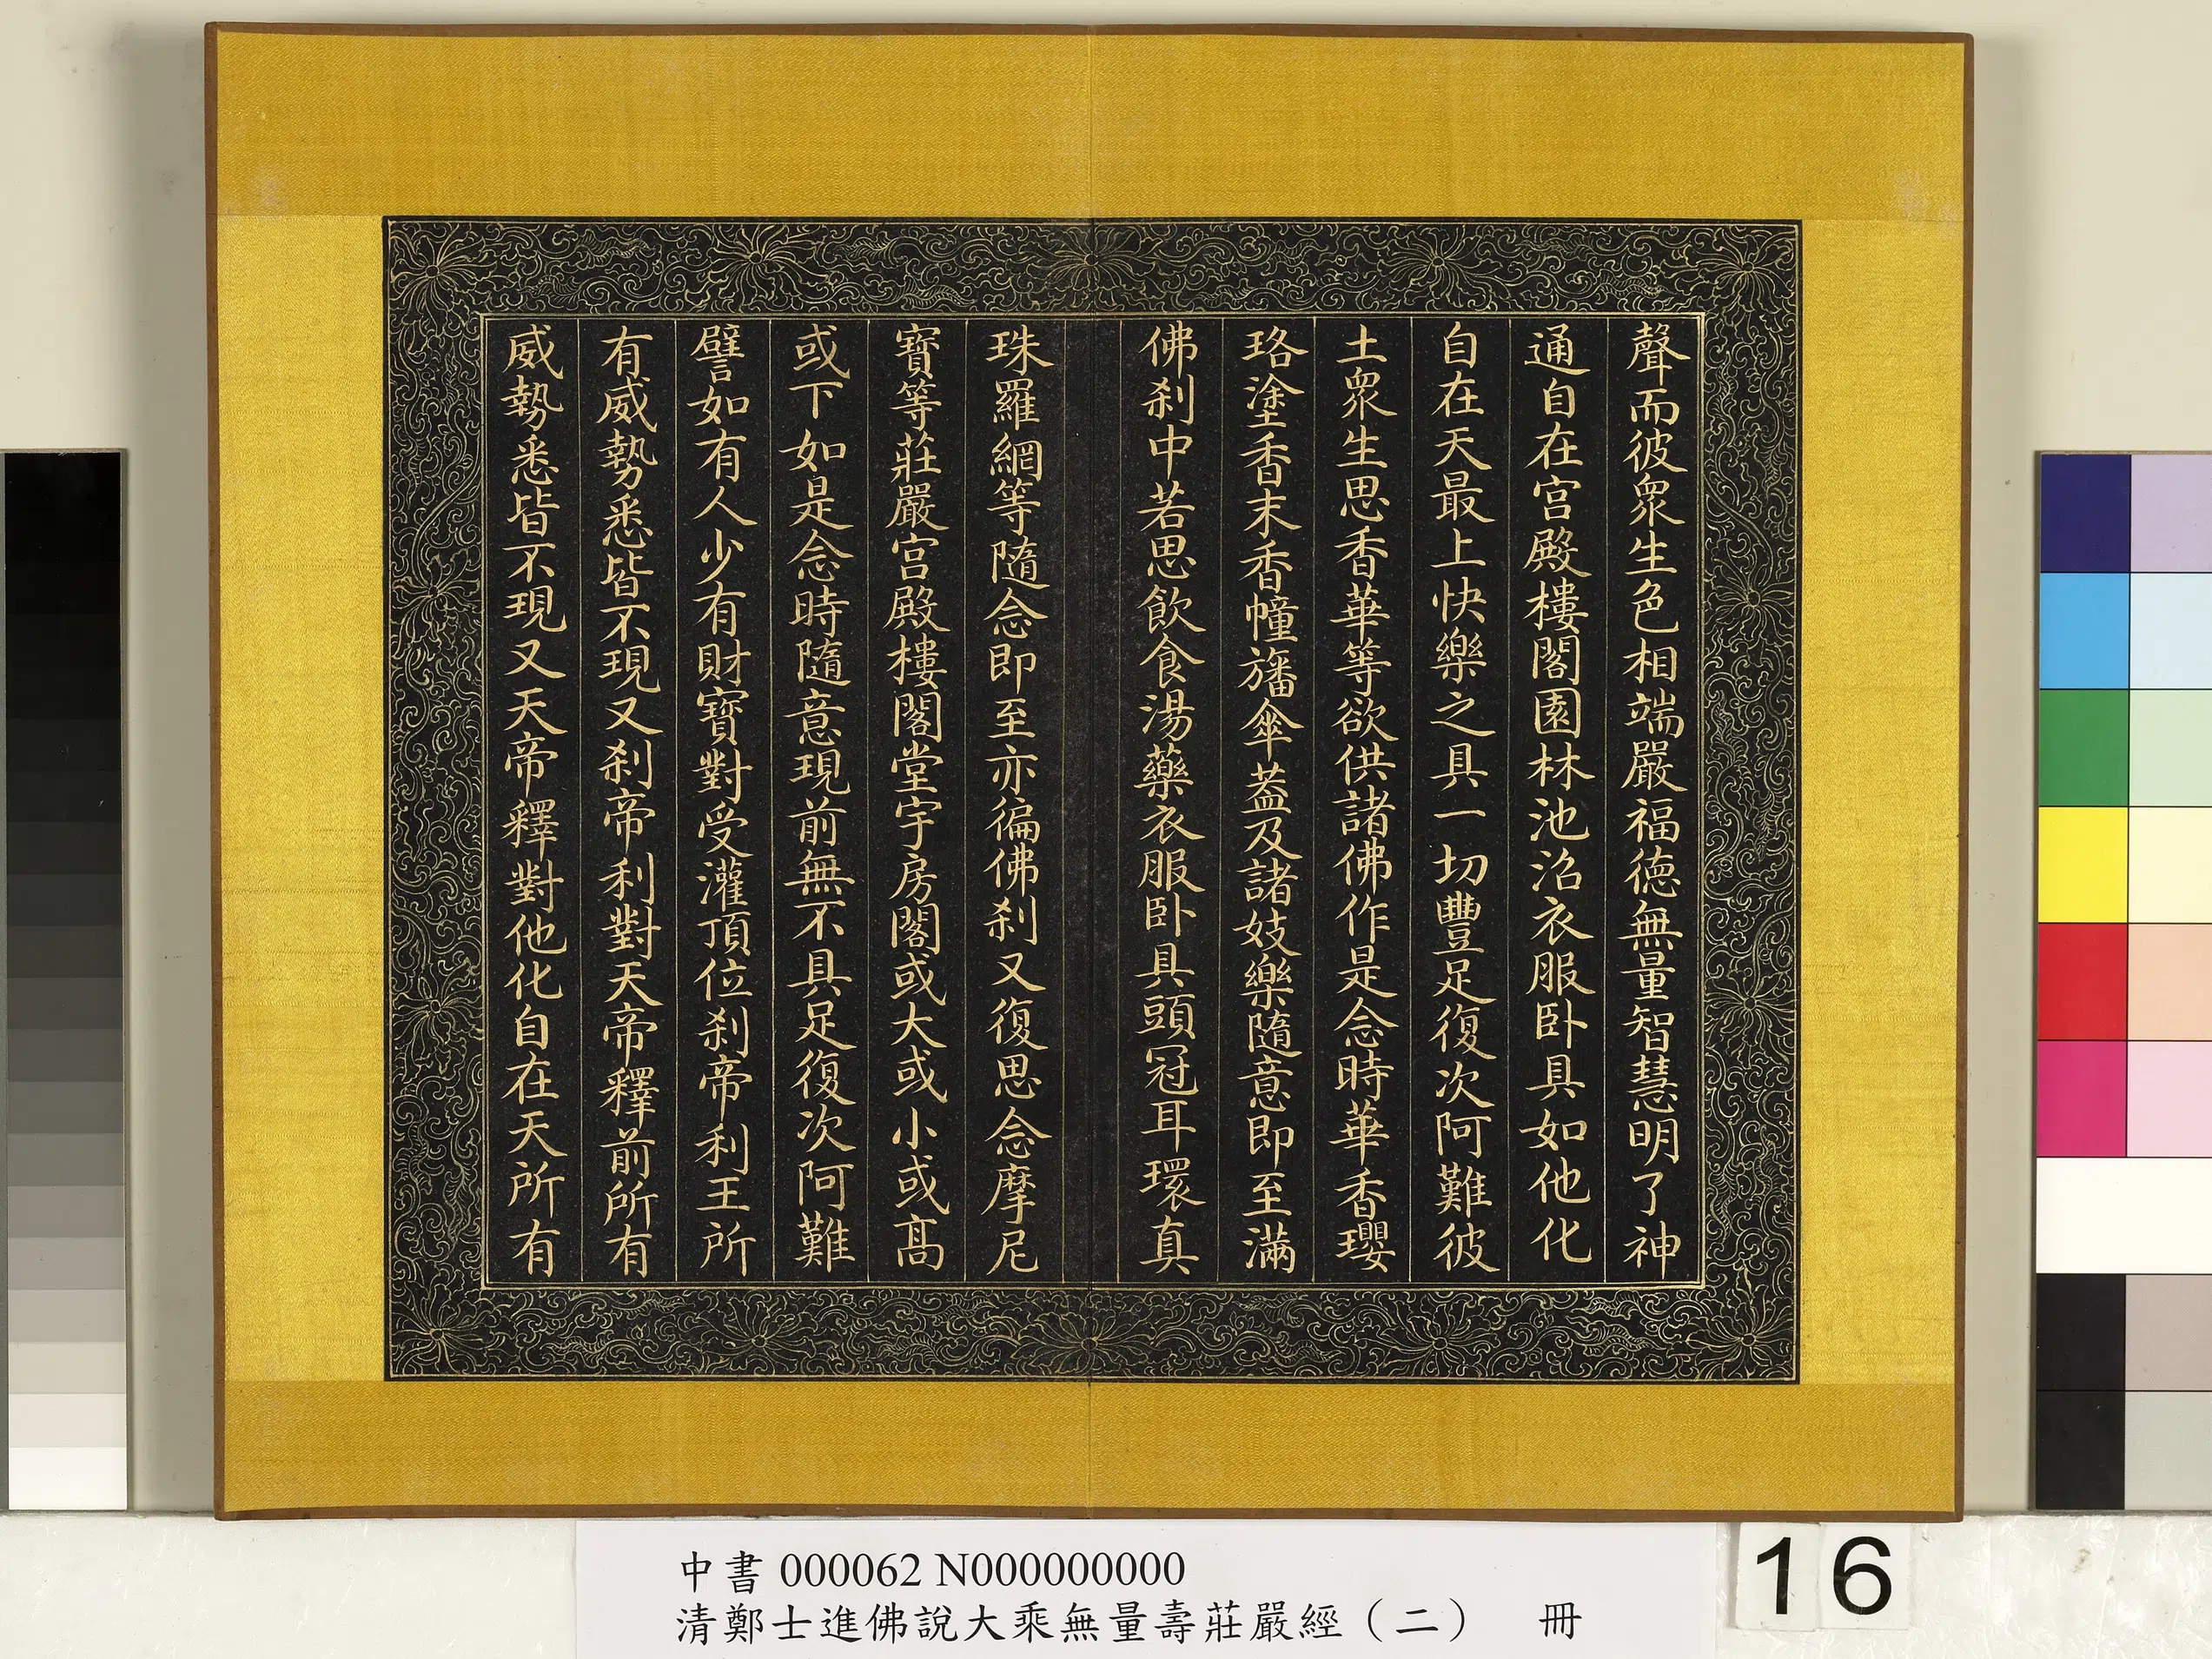 聲而彼衆生色相端嚴福德無量智慧明了神
通自在宮殿樓閣園林池沼衣服卧具如他化
自在天最上快樂之具一切豐足復次阿難彼
土衆生思香華等欲供諸佛作是念時華香瓔
珞塗香末香幢旛傘葢及諸妓樂隨意即至滿
佛刹中若思飲食湯藥衣服卧具頭冠耳環真
珠羅網等隨念即至亦徧佛刹又復思念摩尼
寶等莊嚴宮殿樓閣堂宇房閣或大或小或髙
或下如是念時隨意現前無不具足復次阿難
譬如有人少有財寶對受灌頂位刹帝利王所
有威勢悉皆不現又刹帝利對天帝釋前所有
威勢悉皆不現又天帝釋對他化自在天所有
中書 000062 N000000000
清鄭士進佛說大乘無量壽莊嚴經（二） 冊
16